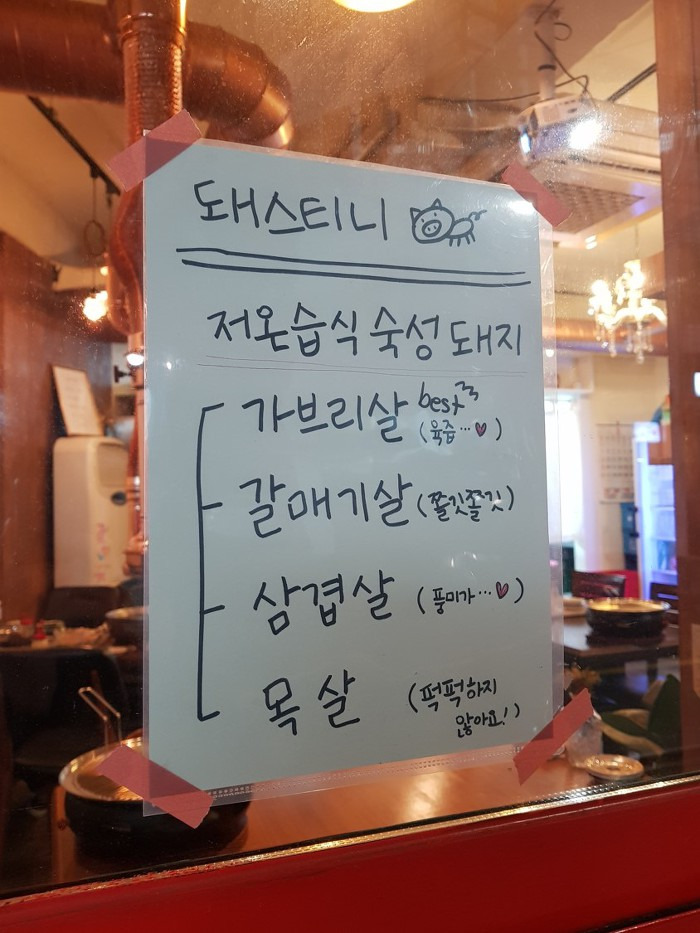 돼스티니
저온습식 숙성 돼지
가브리살 best
(육즙...♥)
갈매기살 (쫄깃쫄깃)
삼겹살 (풍미가...♥)
목살 (퍽퍽하지
않아요!)